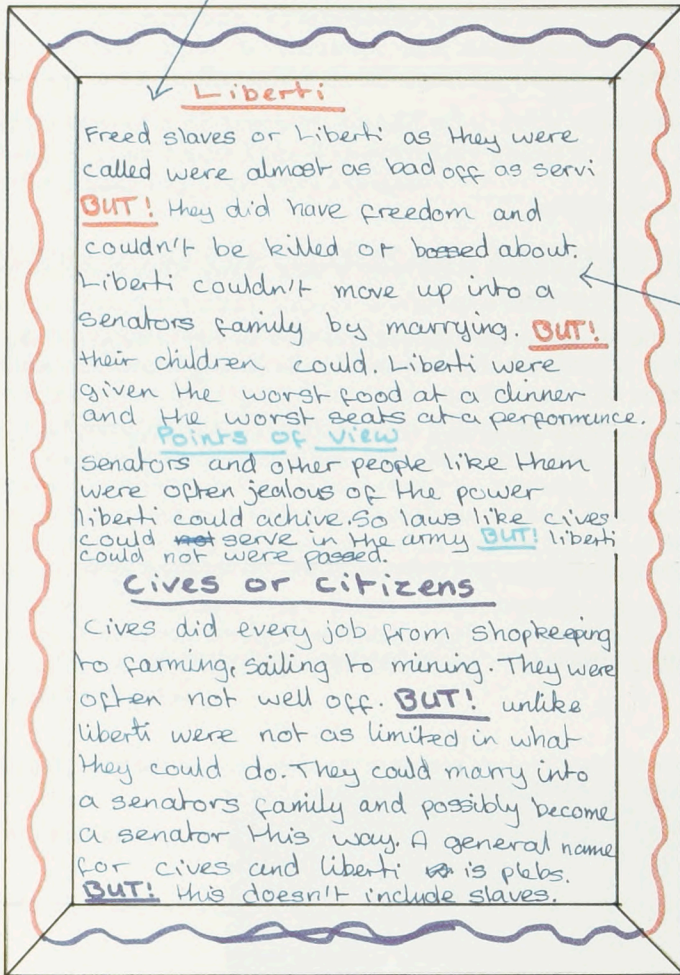 Liberti
Freed slaves or Liberti as they were
called were almost as bad off as servi
BUT! they did have freedom and
couldn't be killed or bossed about.
Liberti couldn't move up into a
senators family by marrying. BUT!
their children could. Liberti were
given the worst food at a dinner
and the worst seats at a performance.
Points of view
senators and other people like them
were often jealous of the power
liberti could achive. So laws like cives
could not serve in the army BUT! liberti
could not were passed.
Cives or citizens
Cives did every job from shopkeeping
to farming, sailing to mining. They were
often not well off. BUT! unlike
liberti were not as limited in what
they could do. They could marry into
a senators family and possibly become
a senator this way. A general name
for cives and liberti is plebs.
BUT! this doesn't include slaves.